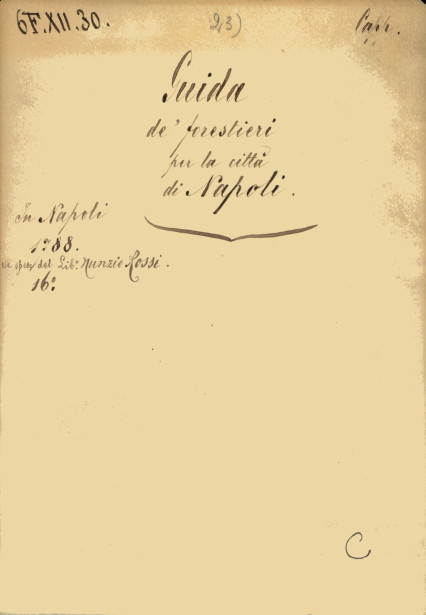 6F.XII.30.
2,3)
Capp.
Guida
de' forestieri
per la città
di Napoli.
In Napoli
1788.
spese del Lib.º Nunzio Rossi.
16º
C